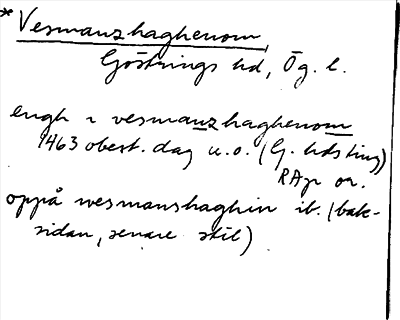 * Vesmanzhaghenom
Göstrings hd, Ög. l.
engh ı vesmanzhaghenom
1463 obest. dag u.o. (G. hdsting)
RAp or.
oppå wesmanshaghin ib. (bak-
sidan, senare stil)